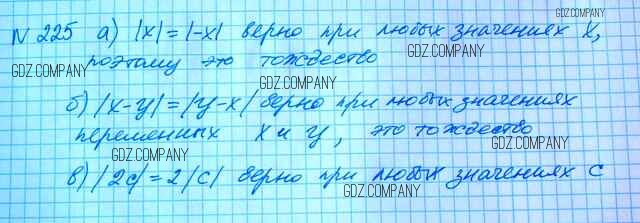 № 225 а) |x| = |-x| верно при любых значениях x,
GDZ.COMPANY
GDZ.COMPANY
поэтому это тождество
GDZ.COMPANY
GDZ.COMPANY
б) |x-y| = |y-x| верно при любых значениях
GDZ.COMPANY
GDZ.COMPANY
переменных x и y, это тождество
GDZ.COMPANY
GDZ.COMPANY
в) |2c| = 2|c| верно при любых значениях c
GDZ.COMPANY